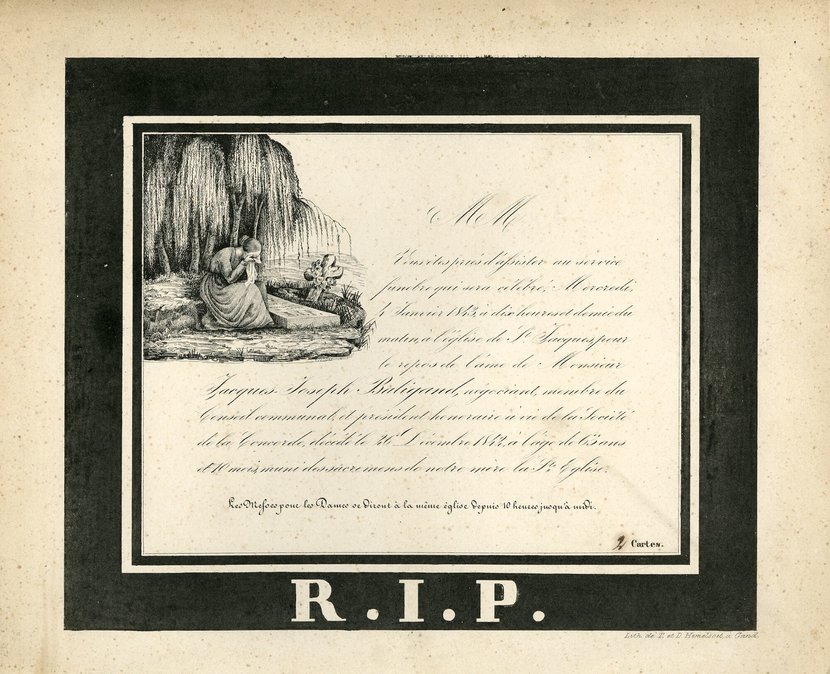 M M
Vous êtes priés d'assister au service
funèbre qui sera célébré, Mercredi,
4 Janvier 1843, à dix heures et demie du
matin, à l'église de St Jacques, pour
le repos de l'âme de Monsieur
Jacques Joseph Baligand, négociant, membre du
Conseil communal, et président honoraire à vie de la Société
de la Concorde, décédé le 26 Décembre 1842, à l'âge de ans
et 10 mois, muni des sacremens de notre mère la Ste Eglise.
Les Messes pour les Dames se diront à la même église depuis 10 heures jusqu'à midi.
2 Cartes.
R.I.P.
Lith. de T. et D. Hemelsoet, à Gand.